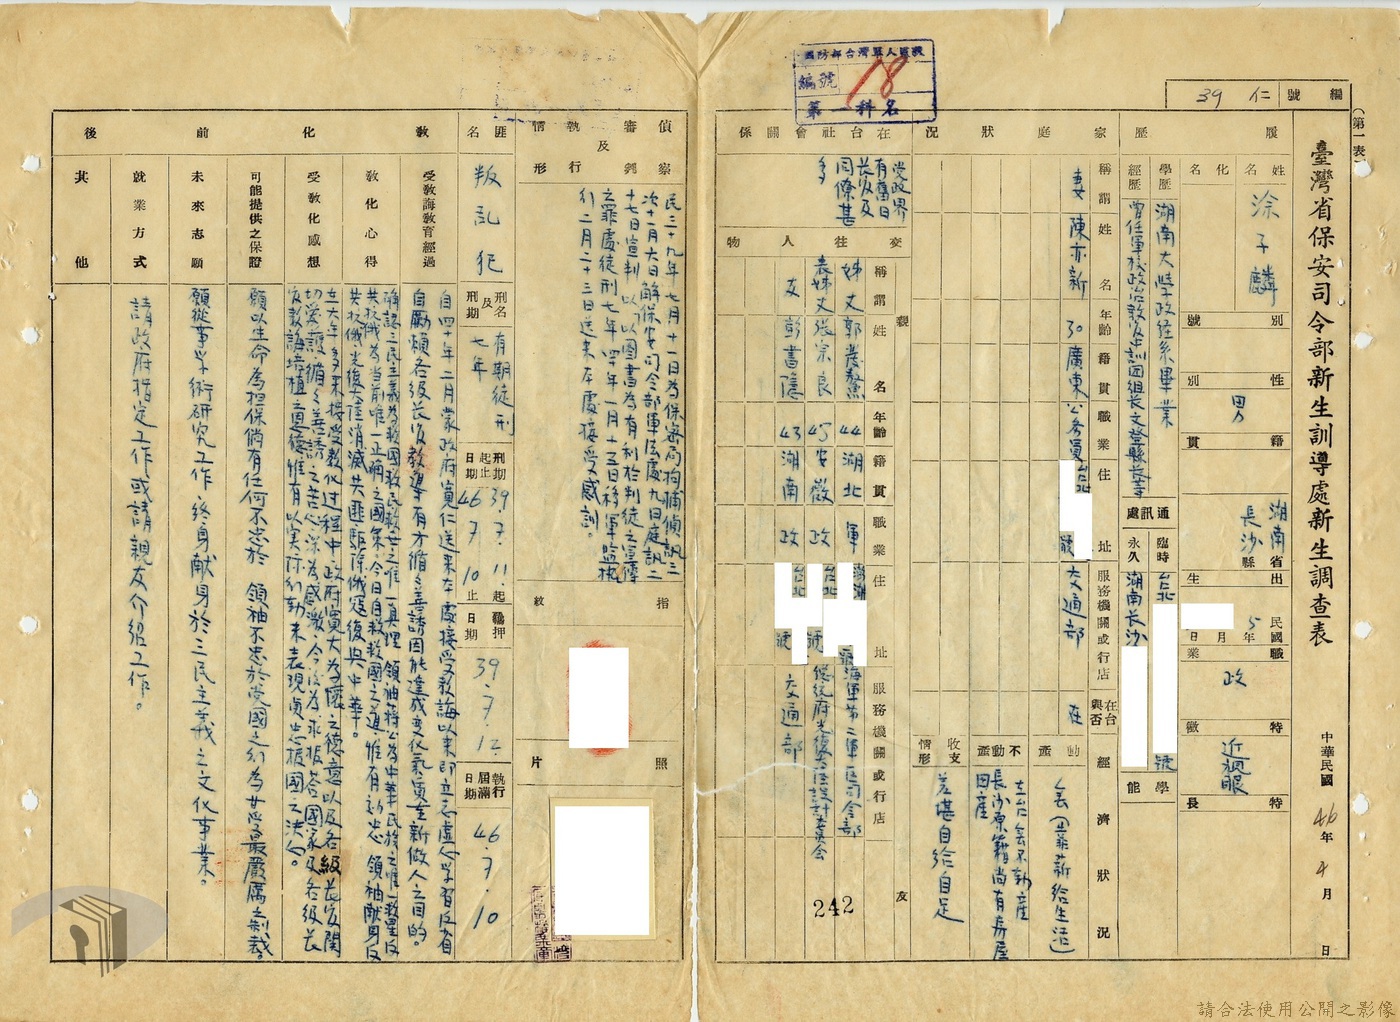 國防部台灣軍人監獄
編號 18
第一科名
編號 仁 39
（第一表）
臺灣省保安司令部新生訓導處新生調查表
中華民國 46 年 4 月 日
履歷
姓名 涂子麟
化名
別號
性別 男
籍貫 湖南省長沙縣
出生 民國 5 年 月 日
職業 政
特徵 近視眼
特長
學歷 湖南大學政經系畢業
經歷 曾任軍校政治教官中訓團組長文登縣長等
通訊處
臨時 台北 號
永久 湖南長沙
學能
家庭狀況
稱謂 姓名 年齡 籍貫 職業 住址 服務機關或行店 在台與否
妻 陳亦新 30 廣東 公務員 台北 號 交通部 在
經濟狀況
動產 全靠薪給生活
不動產 在台全不動產
長沙原籍尚有房屋
田產
收支情形 差堪自給自足
在台社會關係
受政界
有舊日
長官及
同僚甚
多
交往人物
親友
稱謂 姓名 年齡 籍貫 職業 住址 服務機關或行店
姊丈 郭發鰲 44 湖北 軍 號 海軍第二軍區司令部
表姊丈 張宗良 45 安徽 政 台北 號 總統府光復大陸設計委員會
友 彭書隱 43 湖南 政 台北 號 交通部
242
偵察審判及執行情形
民三十九年七月十一日為保密局拘捕偵訊三
次十一月六日解保安司令部軍法處九日庭訊二
十七日宣判以「以圖書為有利於判徒之宣傳」
之罪處徒刑七年四十年一月十五日移軍監執
行二月二十三日送來本處接受感訓。
指紋
照片
匪名 叛亂犯
刑名及刑期 有期徒刑七年
刑期起止日期 39.7.11.起 46.7.10止
羈押日期 39.7.12.
執行屆滿日期 46.7.10
教化前後
受教誨教育經過
自四十年二月蒙政府寬仁送來本處接受教誨以來即立志虛心學習反省
自勵頗各級長官教導有方循循善誘因能達成變化氣質重新做人之目的。
教化心得
確認三民主義為救國救民救世之唯一真理 領袖蔣公為中華民族之唯一救星反
共抗俄為當前唯一正確之國策今日自救救國之道惟有効忠 領袖獻身反
共抗俄光復大陸消滅共匪驅除俄寇復興中華。
受教化感想
在六年多來接受教化過程中政府寬大為懷之德意以及各級長官關
切愛護循循善誘之苦心深為感激今後為求報答國家及各級長
官教誨培植之恩德惟有以實際行動來表現貞忠報國之決心。
可能提供之保證
願以生命為担保倘有任何不忠於 領袖不忠於黨國之行為甘受最嚴厲之制裁。
未來志願
願從事學術研究工作 終身献身於三民主義之文化事業。
就業方式
請政府指定工作或請親友介紹工作。
其他
請合法使用公開之影像